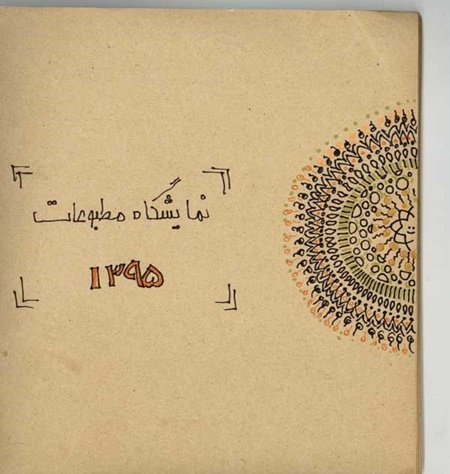 نمایشگاه مطبوعات
۱۳۹۵